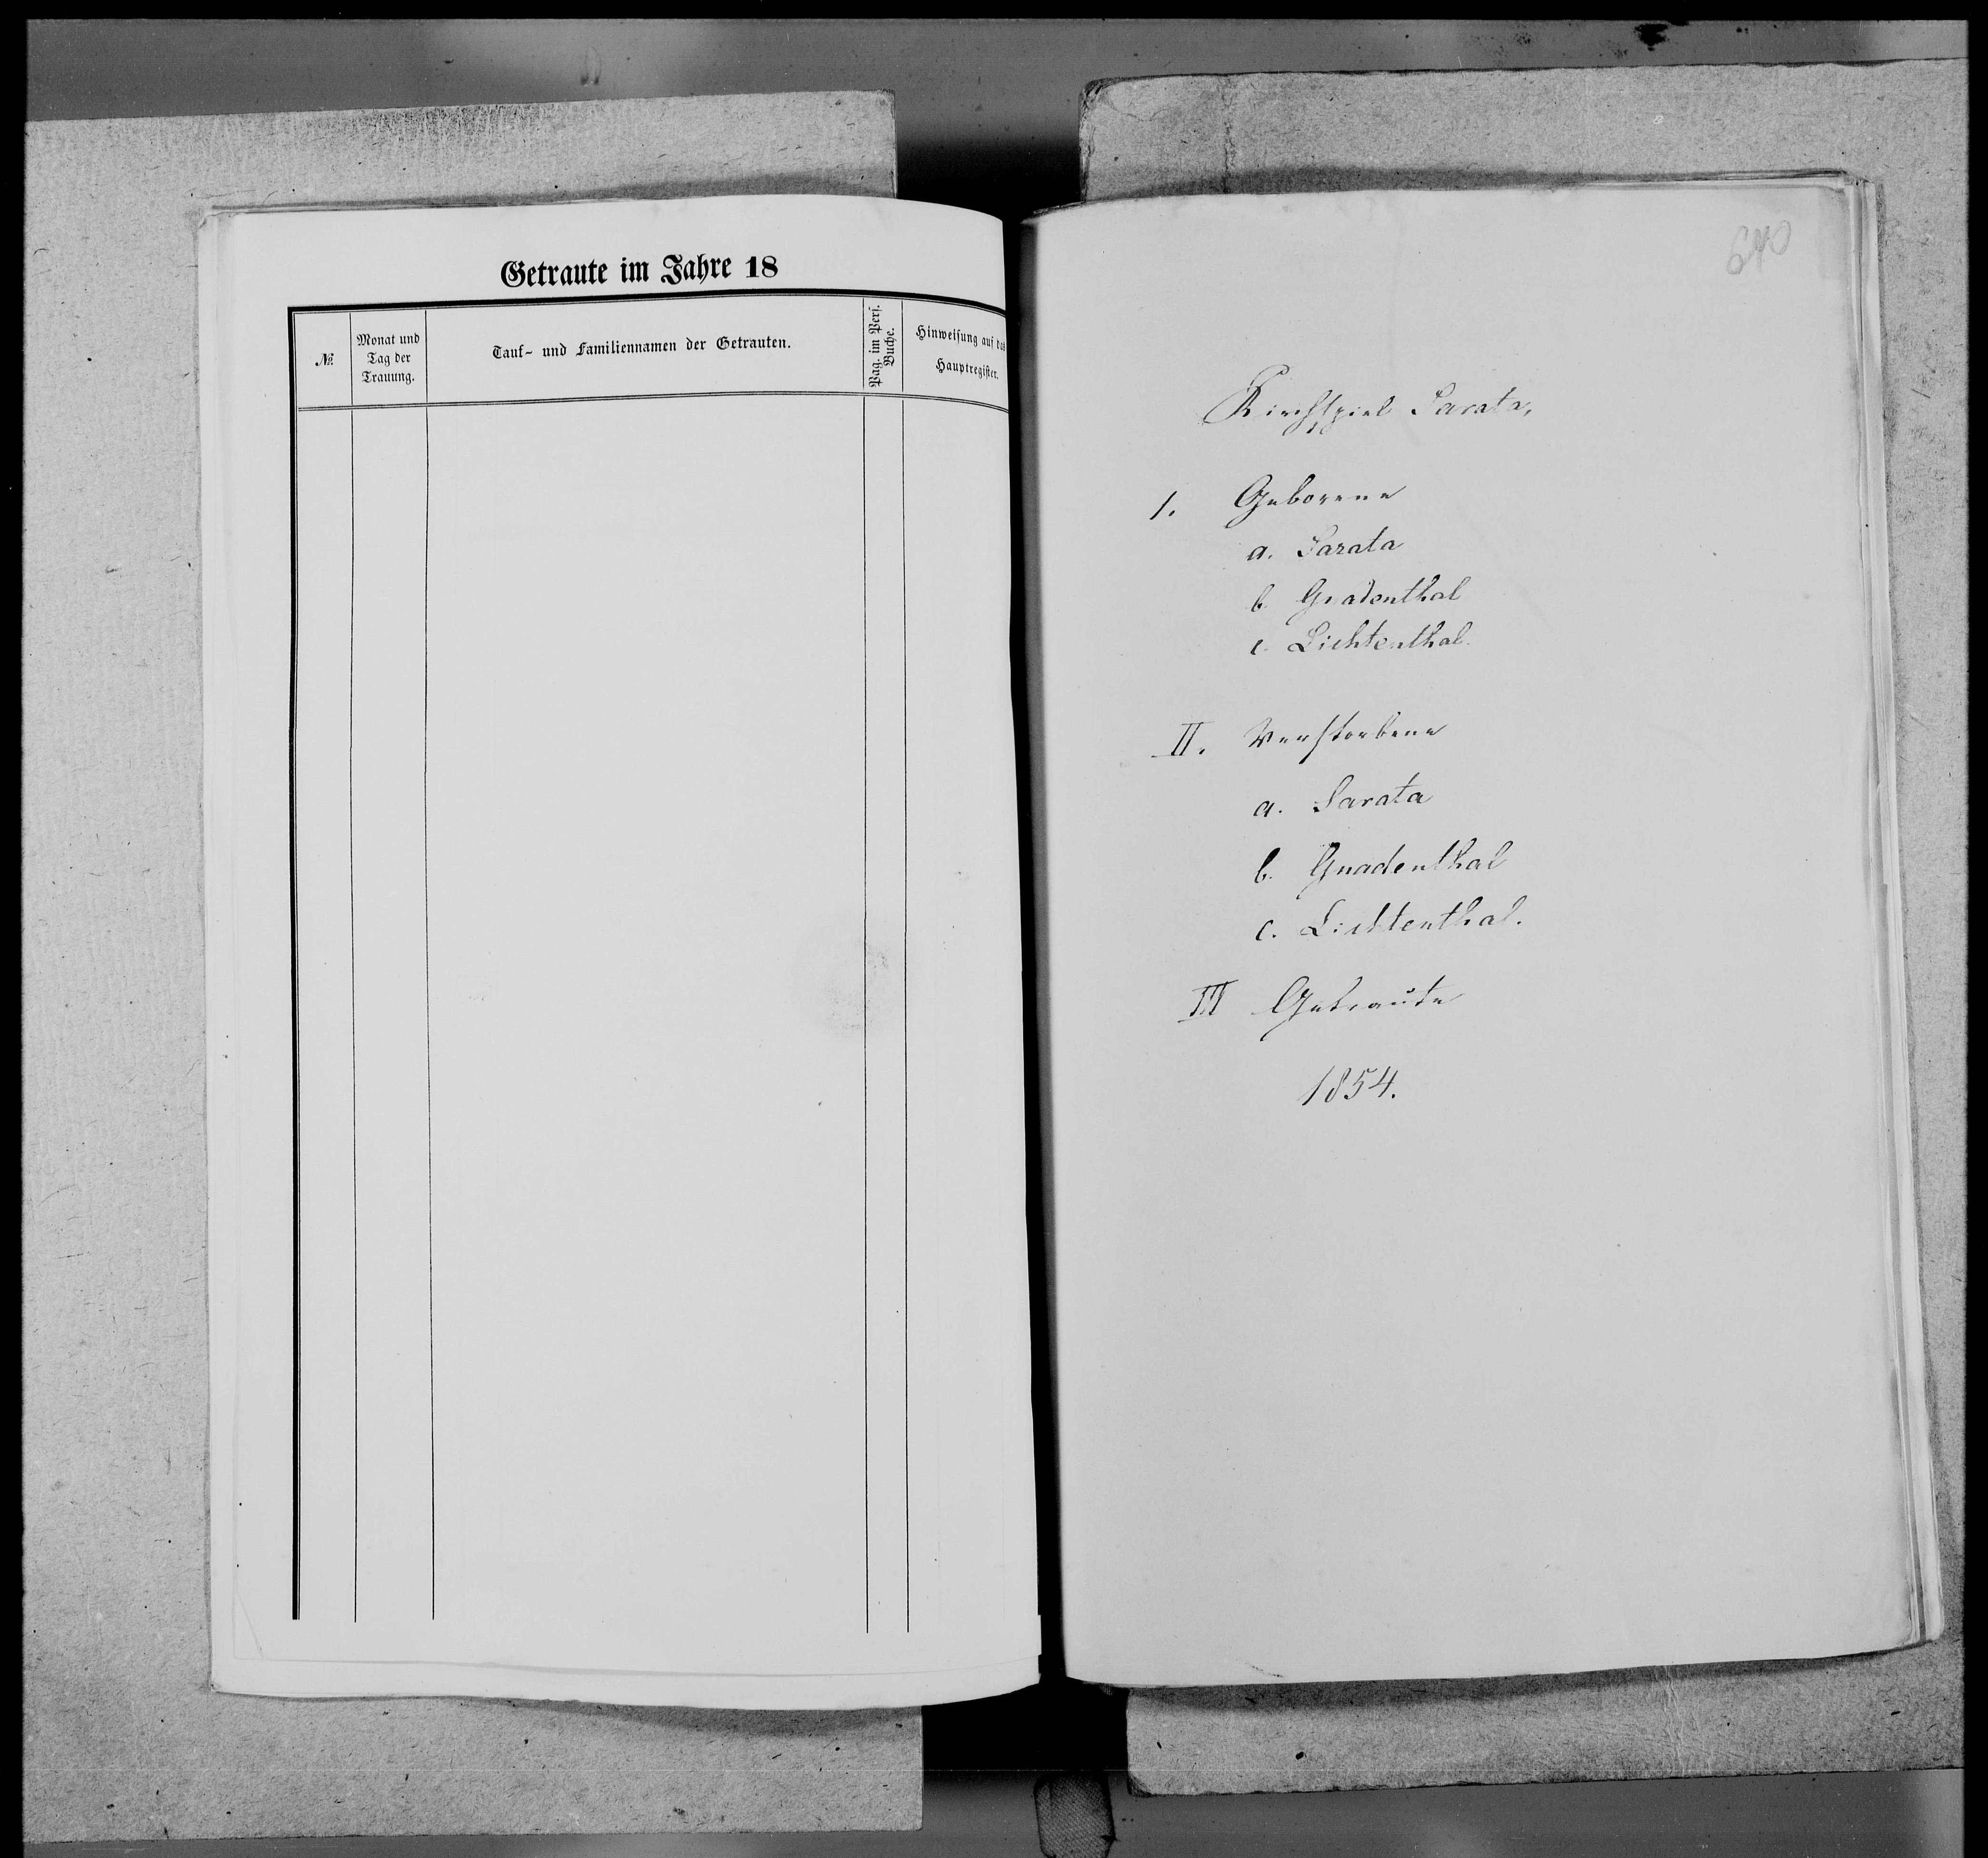 Getraute im Jahre 18
№
Monat und
Tag der
Trauung.
Tauf- und Familiennamen der Getrauten.
Pag. im Pers.
Buche.
Hinweisung auf das
Hauptregister.
640
Kirchspiel Sarata,
1. Geborene
a. Sarata
b. Gnadenthal
c. Lichtenthal.
II. Verstorbene
a. Sarata
b. Gnadenthal
c. Lichtenthal.
III Getraute
1854.